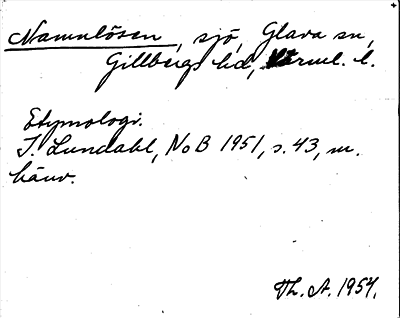 Namnlösen, sjö, Glava sn,
Gillbergs hd, Värml. l.
Etymologi.
I. Lundahl, NoB 1951, s. 43, m.
hänv.
Th. A. 1954.